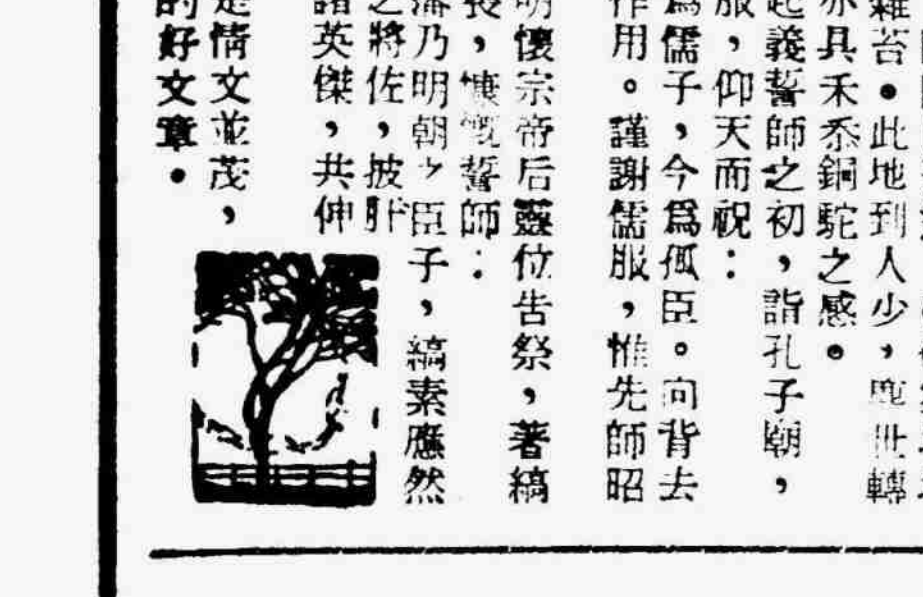 雜苔。此地到人少，鹿世轉
亦具禾黍銅駝之感。
起義誓師之初，詣孔子廟，
服，仰天而祝：
為儒子，今爲孤臣。向背去
作用。謹謝儒服，惟先師昭
明懷宗帝后靈位告祭，著縞
喪，慷慨誓師：
藩乃明朝之臣子，縞素應然
之將佐，披肝
諸英傑，共伸
是情文並茂，
的好文章。